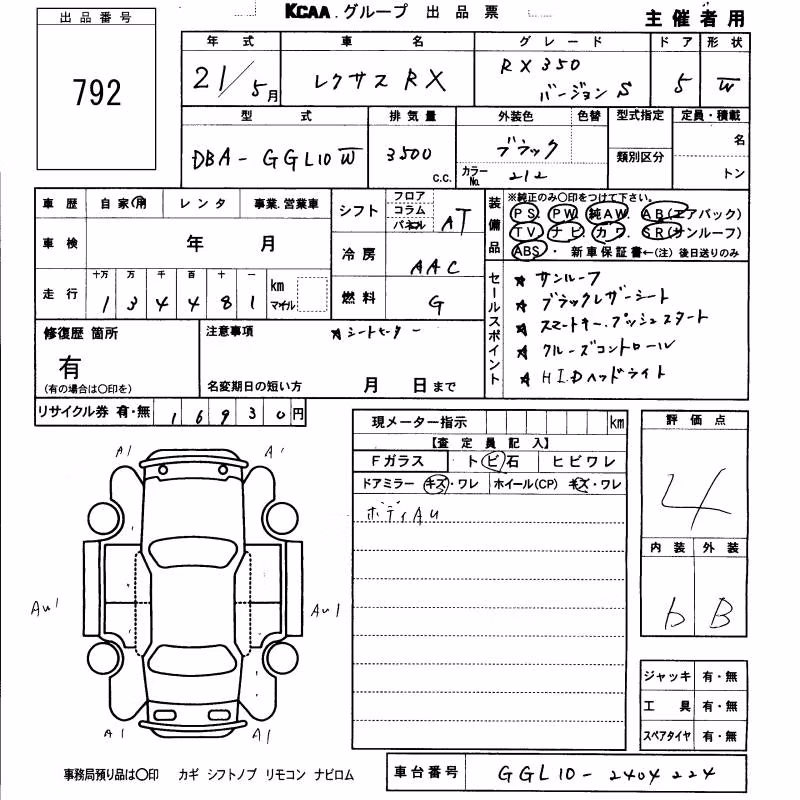 出品番号
792
KCAA グループ 出品票
主催者用
年式 車名 グレード ドア 形状
21/5月 レクサス RX RX350 バージョン S 5 W
型式 排気量 外装色 色替 型式指定 定員・積載
DBA-GGL10W 3500 c.c. ブラック 名
カラーNo. 212 類別区分 トン
車歴 自家用 レンタ 事業.営業車
車検 年 月
走行 十万 万 千 百 十 一
1 3 4 4 8 1 km マイル
シフト フロア コラム パネル AT
冷房 AAC
燃料 G
装備品
※純正のみ〇印をつけて下さい。
PS. PW. 純AW. AB(エアバック)
TV. ナビ. カワ. SR(サンルーフ)
ABS・ 新車保証書←(注)後日送りのみ
セールスポイント
★ サンルーフ
★ ブラックレザーシート
★ スマートキー.プッシュスタート
★ クルーズコントロール
★ H.I.Dヘッドライト
修復歴 箇所
有
(有の場合は〇印を)
注意事項 ★シートヒーター
名変期日の短い方 月 日まで
リサイクル券 有・無 16930円
現メーター指示 km
【査定員記入】
Fガラス トビ石 ヒビワレ
ドアミラー キズ・ワレ ホイール(CP) キズ・ワレ
ボディAU
評価点
4
内装 外装
b B
A1 A1
AU1 AU1
A1 A1
ジャッキ 有・無
工具 有・無
スペアタイヤ 有・無
事務局預り品は〇印 カギ シフトノブ リモコン ナビロム
車台番号 GGL10-2404224